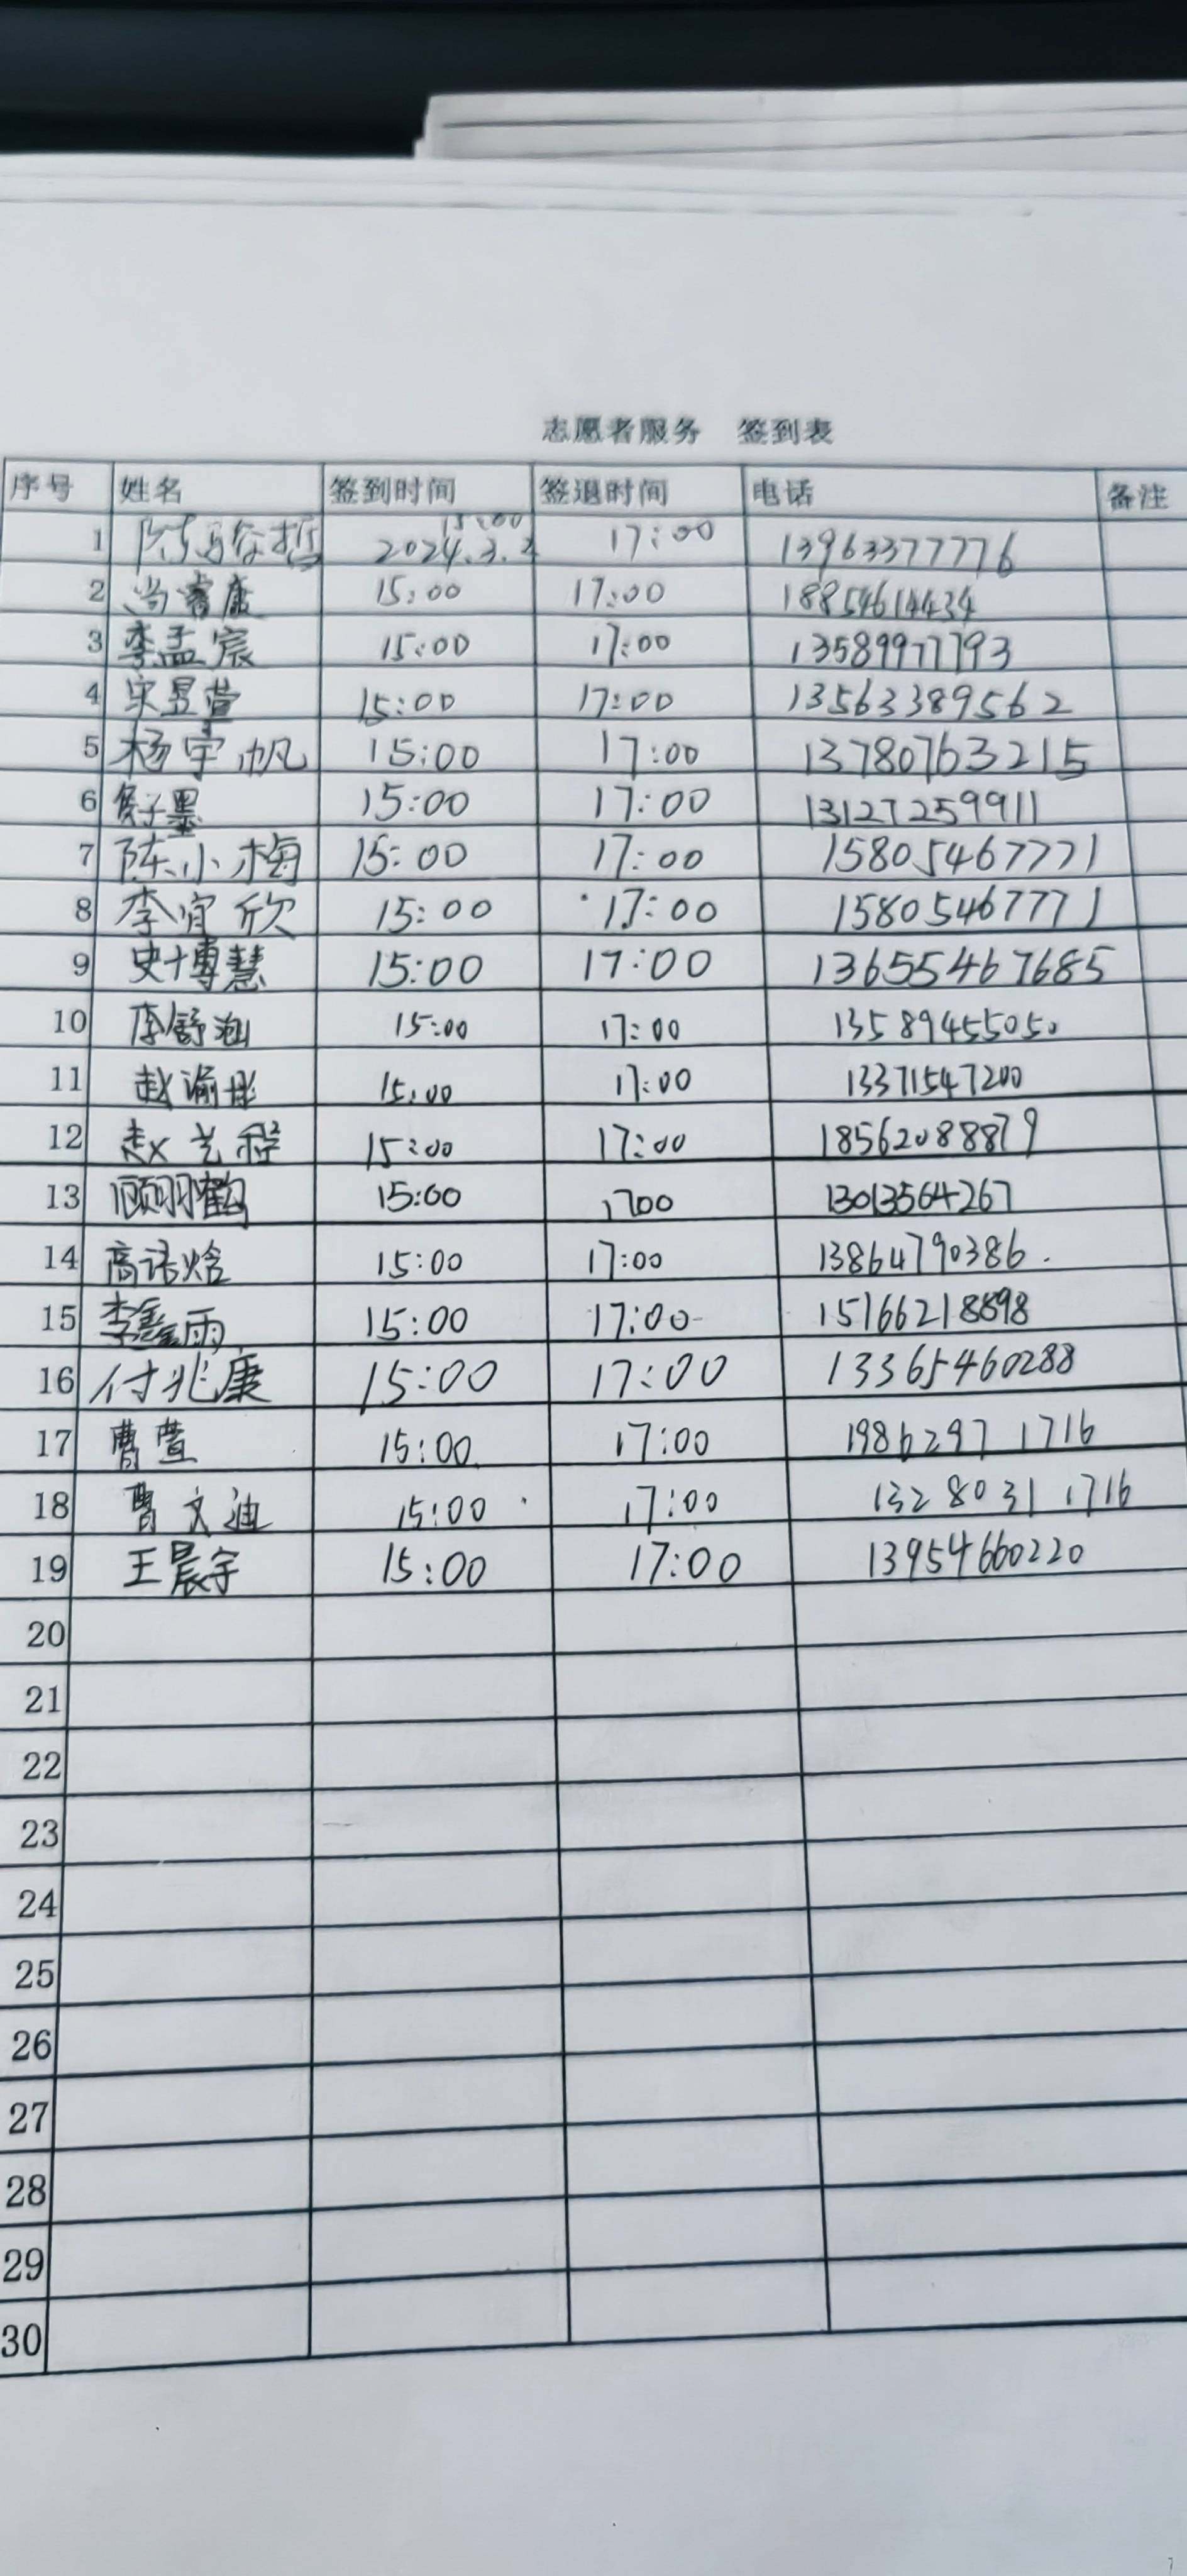 志愿者服务 签到表
序号 姓名 签到时间 签退时间 电话 备注
1 15:00 2024.3.2 17:00 13963377776
2 尚睿康 15:00 17:00 18854614434
3 李孟宸 15:00 17:00 13589977793
4 宋昱萱 15:00 17:00 13563389562
5 杨宇帆 15:00 17:00 13780763215
6 15:00 17:00 13127259911
7 陈小梅 15:00 17:00 15805467771
8 李宜欣 15:00 17:00 15805467771
9 史博慧 15:00 17:00 13655467685
10 李舒涵 15:00 17:00 13589455050
11 15:00 17:00 13371547200
12 赵艺程 15:00 17:00 18562088879
13 顾羽鹤 15:00 1700 13013564267
14 高语晗 15:00 17:00 13864790386
15 李鑫雨 15:00 17:00 15166218898
16 付兆康 15:00 17:00 13365460288
17 曹萱 15:00 17:00 19862971716
18 曹文迪 15:00 17:00 13280311716
19 王晨宇 15:00 17:00 13954660220
20
21
22
23
24
25
26
27
28
29
30